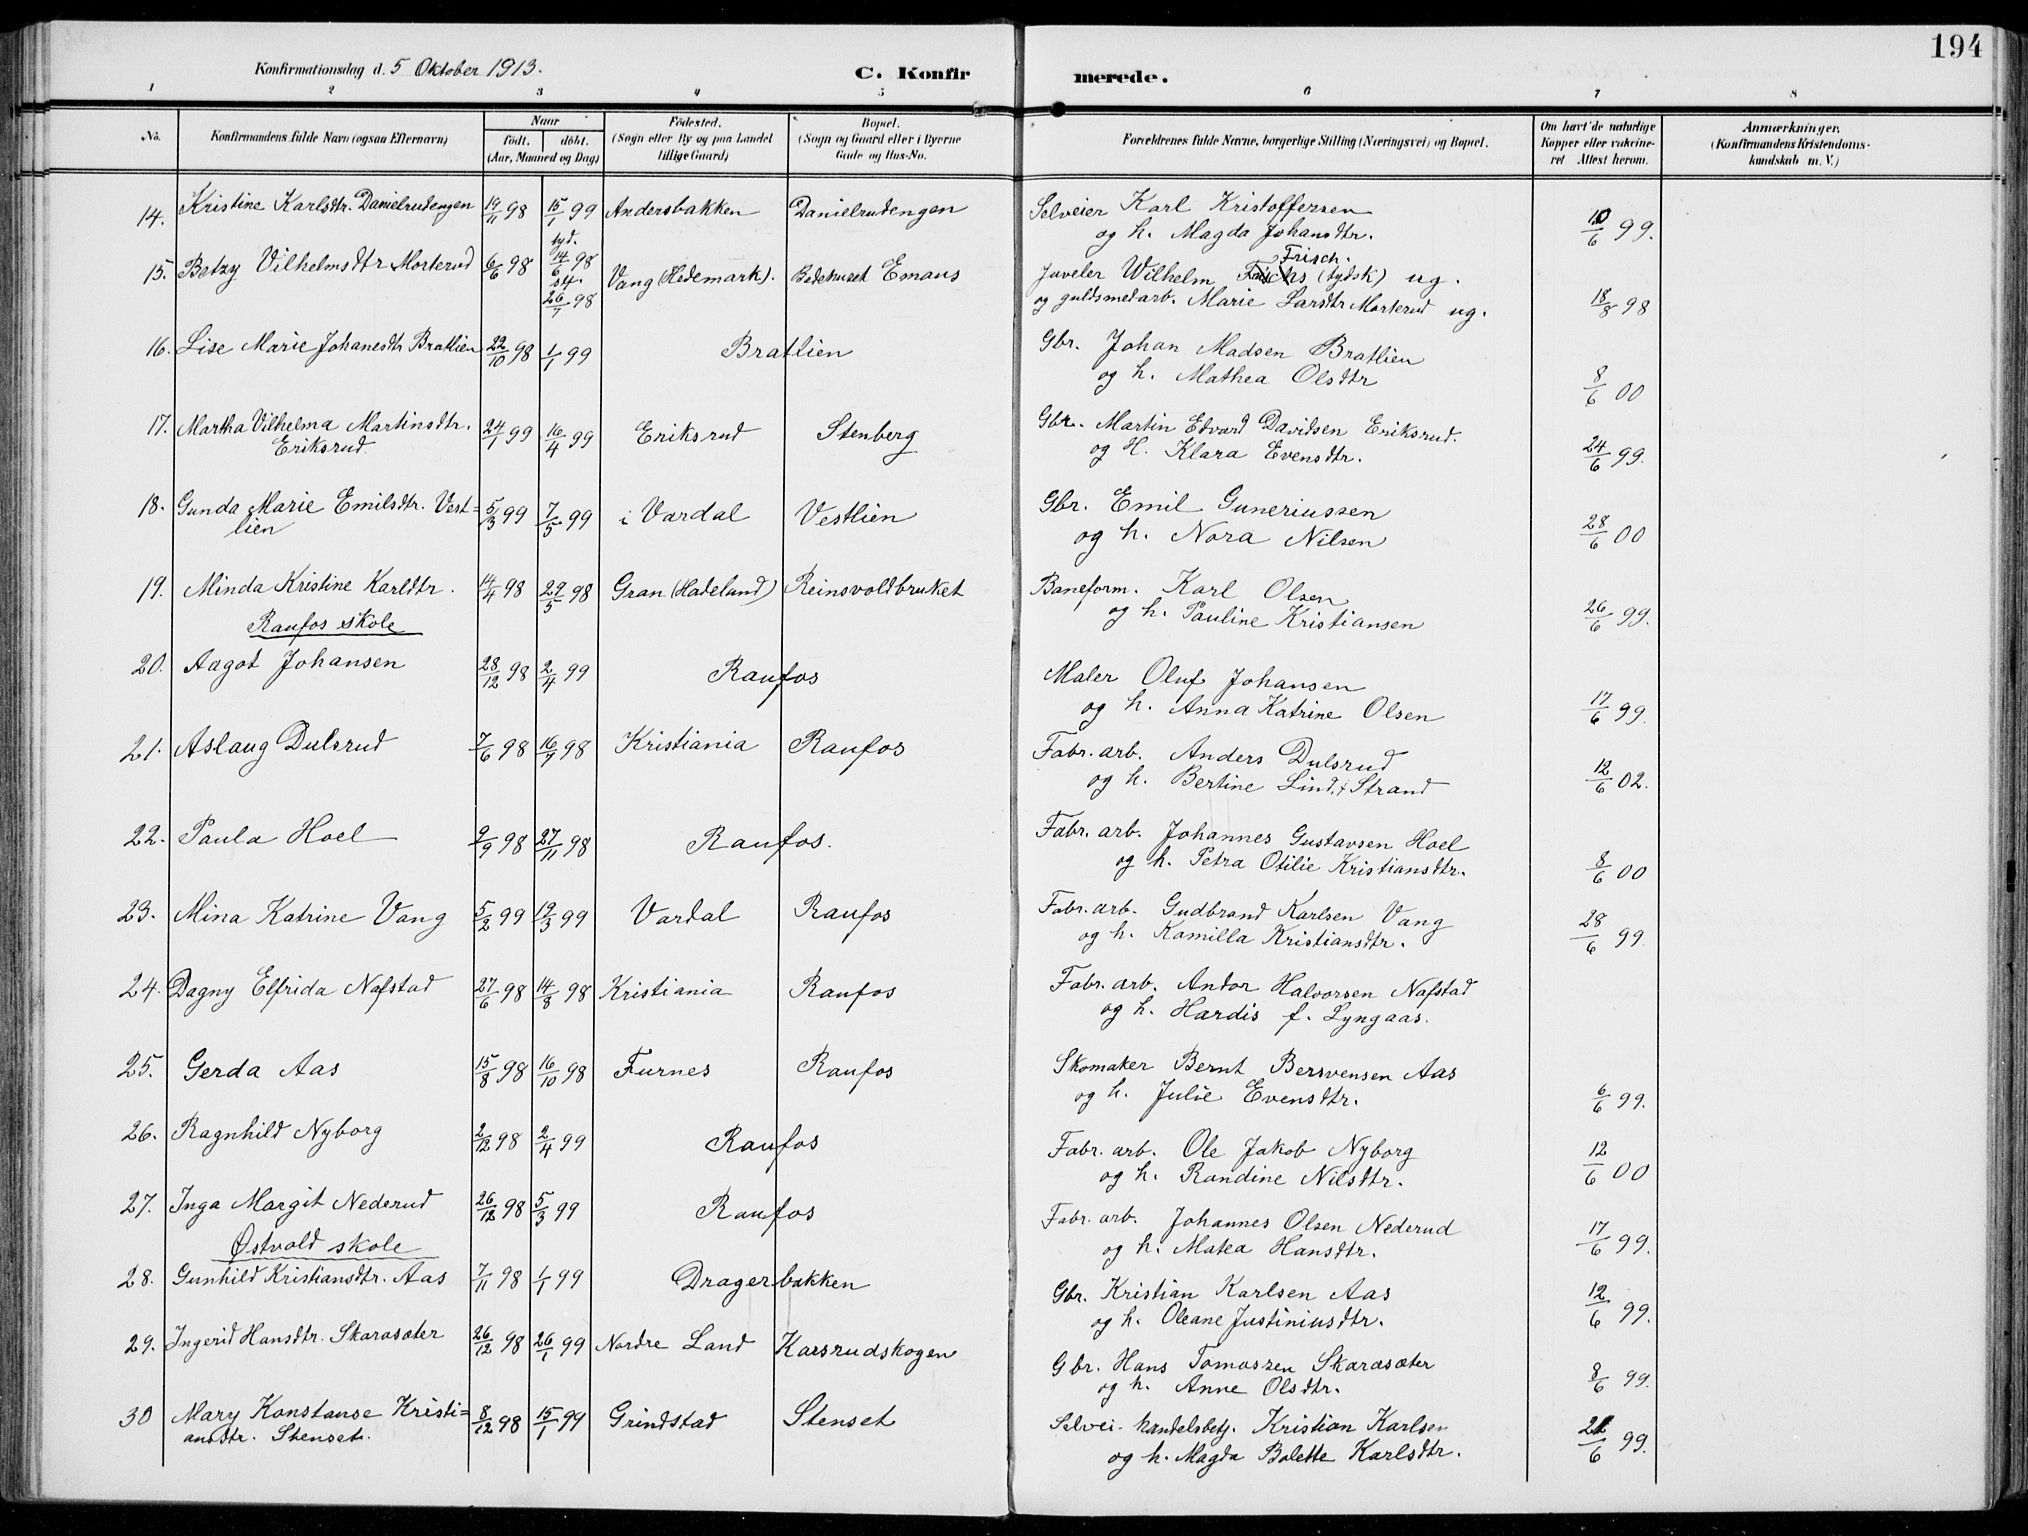 194
Konfirmationsdag d. 5 Oktober 1913.
C. Konfirmerede.
1 2 3 4 5 6 7 8
No. Konfirmandens fulde Navn (ogsaa Efternavn) Naar født. døbt. (Aar, Maaned og Dag) Fødested. (Sogn eller By og paa Landet tillige Gaard) Bopæl. (Sogn og Gaard eller i Byerne Gade og Hus-No. Forældrenes fulde Navne, borgerlige Stilling (Næringsvei) og Bopæl. Om havt de naturlige Kopper eller vakcineret Attest herom. Anmærkninger. (Konfirmandens Kristendomskundskab m. V.)
14. Kristine Karlsdtr. Danielrudengen 19/11 98 15/1 99 Andersbakken Danielrudengen Selveier Karl Kristoffersen 10/6 99.
og h. Magda Johansdtr.
15. Betzy Vilhelmsdtr Morterud 6/6 98 tyd. 14/6 98 st. 26/7 98 Vang (Hedemark). Bedehuset Emaus Juveler Wilhelm Frisch. (tydsk) ug. 18/8 98
og guldsmedarb. Marie Larsdtr Morterud ug.
16. Lise Marie Johanesdtr Bratlien 22/10 98 1/1 99 Bratlien Gbr. Johan Madsen Bratlien 8/6 00
og h. Mathea Olsdtr
17. Martha Vilhelma Martinsdtr. 24/1 99 16/4 99 Eriksrud Stenberg Gbr. Martin Edvard Davidsen Eriksrud. 24/6 99.
Eriksrud. og H. Klara Evensdtr.
18. Gunda Marie Emilsdtr. Vest= 5/3 99 7/5 99 i Vardal Vestlien Gbr. Emil Guneriussen 28/6 00
lien og h. Nora Nilsen
19. Minda Kristine Karldtr. 14/4 98 29/5 98 Gran (Hadeland) Reinsvoldbruket Baneform. Karl Olsen 26/6 99.
og h. Pauline Kristiansen
Raufos skole
20. Aagot Johansen 28/12 98 2/4 99 Raufos Maler Oluf Johansen 17/6 99.
og h. Anna Katrine Olsen
21. Aslaug Dulsrud 7/6 98 16/9 98 Kristiania Raufos Fabr. arb. Anders Dulsrud 12/6 02.
og h. Bertine Lind. f Strand
22. Paula Hoel 9/9 98 27/11 98 Raufos. Fabr. arb. Johannes Gustavsen Hoel 8/6 00
og h. Petra Otilie Kristiansdtr.
23. Mina Katrine Vang 5/2 99 19/3 99 Vardal Raufos Fabr. arb. Gudbrand Karlsen Vang 28/6 99.
og h. Kamilla Kristiansdtr.
24. Dagny Elfrida Nafstad 27/6 98 14/8 98 Kristiania Raufos Fabr. arb. Andor Halvorsen Nafstad
og h. Hardis f. Lyngaas.
25. Gerda Aas 15/8 98 16/10 98 Furnes Raufos Skomaker Bernt Bersvensen Aas 6/6 99.
og h. Julie Evensdtr.
26. Ragnhild Nyborg 2/12 98 2/4 99 Raufos Fabr. arb. Ole Jakob Nyborg 12/6 00
og h. Randine Nilsdtr.
27. Inga Margit Nederud 26/12 98 5/3 99 Raufos Fabr. arb. Johannes Olsen Nederud 17/6 99.
og h. Matea Hansdtr.
Østvold skole
28. Gunhild Kristiansdtr. Aas 7/11 98 1/1 99 Dragerbakken Gbr. Kristian Karlsen Aas 12/6 99.
og h. Oleane Justiniusdtr.
29. Ingerid Hansdtr. Skarasæter 26/12 98 26/1 99 Nordre Land Karsrudskogen Gbr. Hans Tomassen Skarasæter 8/6 99.
og h. Anne Olsdtr.
30 Mary Konstanse Kristi= 8/12 98 15/1 99 Grindstad Stenset Selvei. handelsbetj. Kristian Karlsen 21/6 99.
ansdtr. Stenset. og h. Magda Bolette Karlsdtr.